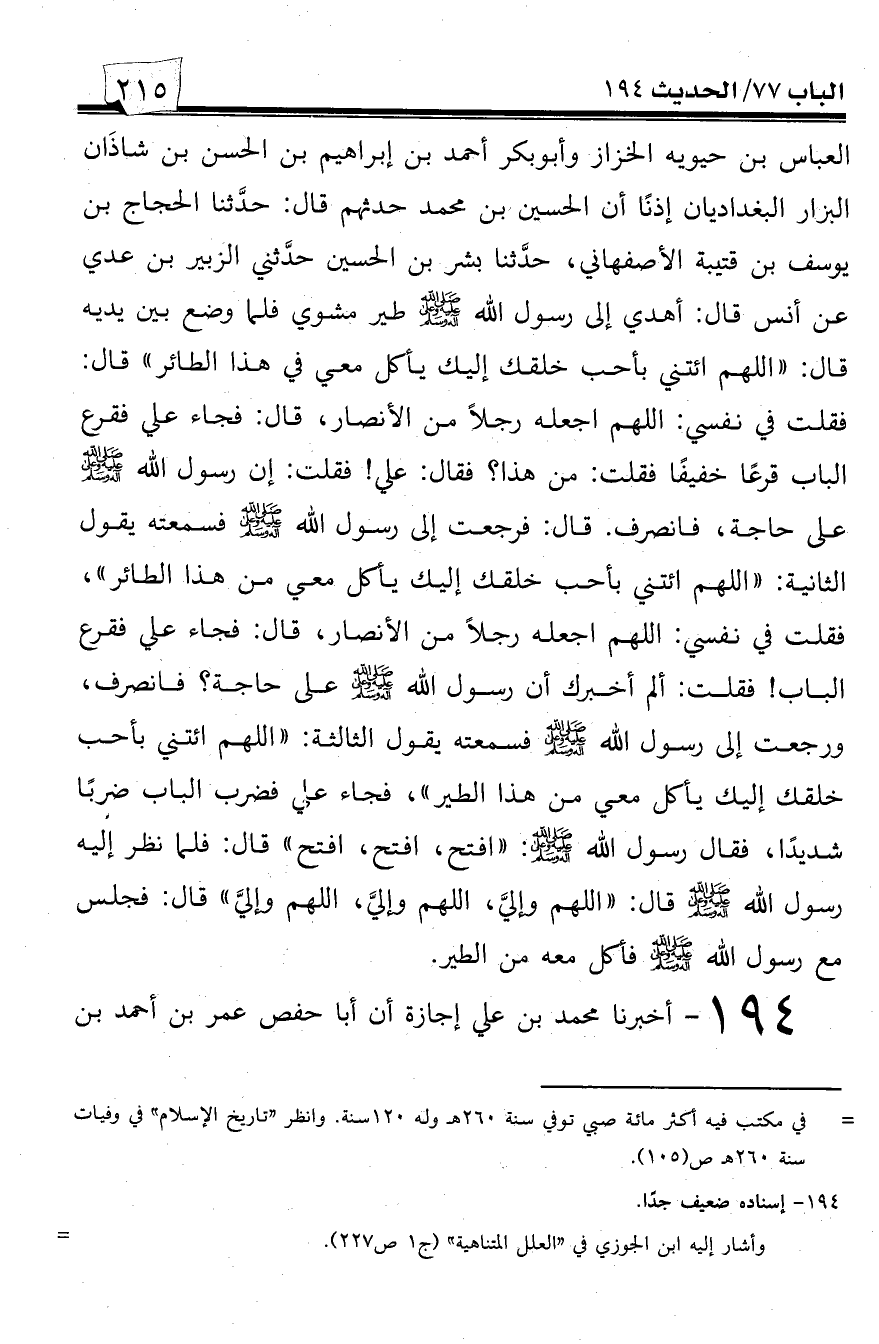 الباب ٧٧/ الحديث ١٩٤
٢١٥
العباس بن حيويه الخزاز وأبوبكر أحمد بن إبراهيم بن الحسن بن شاذَان
البزار البغداديان إذنًا أن الحسين بن محمد حدثهم قال: حدَّثنا الحجاج بن
يوسف بن قتيبة الأصفهاني، حدَّثنا بشر بن الحسين حدَّثني الزبير بن عدي
عن أنس قال: أهدي إلى رسول الله ﷺ طير مشوي فلما وضع بين يديه
قال: «اللهم ائتني بأحب خلقك إليك يأكل معي في هذا الطائر» قال:
فقلت في نفسي: اللهم اجعله رجلاً من الأنصار، قال: فجاء علي فقرع
الباب قرعًا خفيفًا فقلت: من هذا؟ فقال: علي! فقلت: إن رسول الله ﷺ
على حاجة، فانصرف. قال: فرجعت إلى رسول الله ﷺ فسمعته يقول
الثانية: «اللهم ائتني بأحب خلقك إليك يأكل معي من هذا الطائر»،
فقلت في نفسي: اللهم اجعله رجلاً من الأنصار، قال: فجاء علي فقرع
الباب! فقلت: ألم أخبرك أن رسول الله ﷺ على حاجة؟ فانصرف،
ورجعت إلى رسول الله ﷺ فسمعته يقول الثالثة: «اللهم ائتني بأحب
خلقك إليك يأكل معي من هذا الطير»، فجاء علي فضرب الباب ضربًا
شديدًا، فقال رسول الله ﷺ: «افتح، افتح، افتح» قال: فلما نظر إليه
رسول الله ﷺ قال: «اللهم وإليَّ، اللهم وإليَّ، اللهم وإليَّ» قال: فجلس
مع رسول الله ﷺ فأكل معه من الطير.
١٩٤- أخبرنا محمد بن علي إجازة أن أبا حفص عمر بن أحمد بن
= في مكتب فيه أكثر مائة صبي توفي سنة ٢٦٠هـ وله ١٢٠سنة. وانظر «تاريخ الإسلام» في وفيات
سنة ٢٦٠هـ ص(١٠٥).
١٩٤- إسناده ضعيف جدًا.
وأشار إليه ابن الجوزي في «العلل المتناهية» (ج١ ص٢٢٧). =